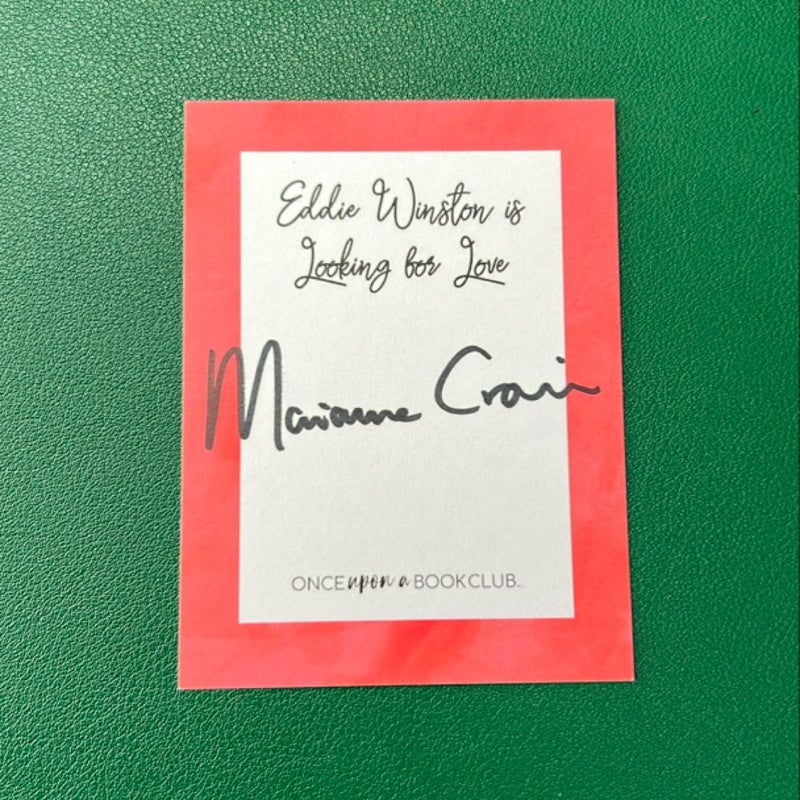 Eddie Winston is
Looking for Love
Marianne Cronin
ONCE upon a BOOK CLUB™